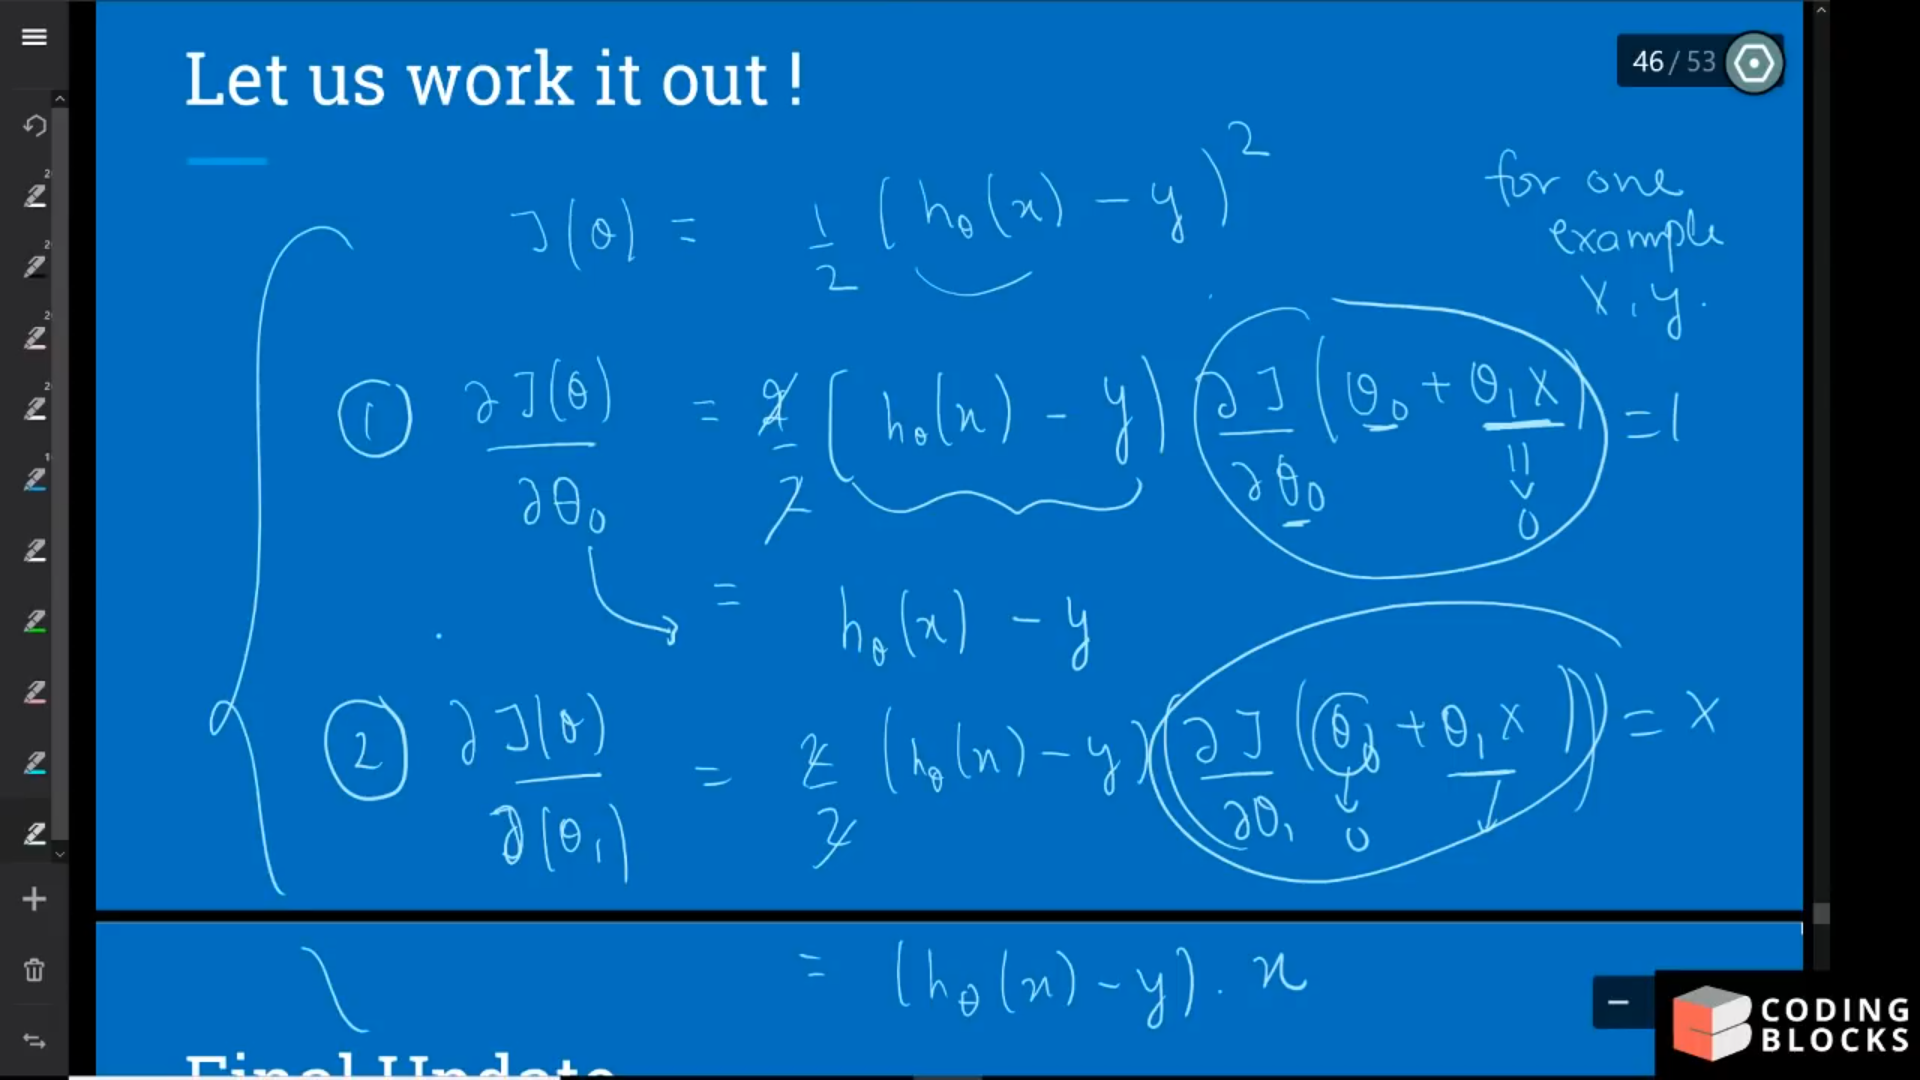 Let us work it out !
46 / 53
J(θ) = 1/2 (hθ(x) - y)²
for one
example
x, y.
① ∂J(θ)/∂θ₀ = 2/2 (hθ(x) - y) ∂J/∂θ₀ (θ₀ + θ₁x) = 1
0
= hθ(x) - y
② ∂J(θ)/∂(θ₁) = 2/2 (hθ(x) - y) (∂J/∂θ₁ (θ₀ + θ₁x)) = x
0
= (hθ(x) - y) . x
CODING
BLOCKS
Final Update